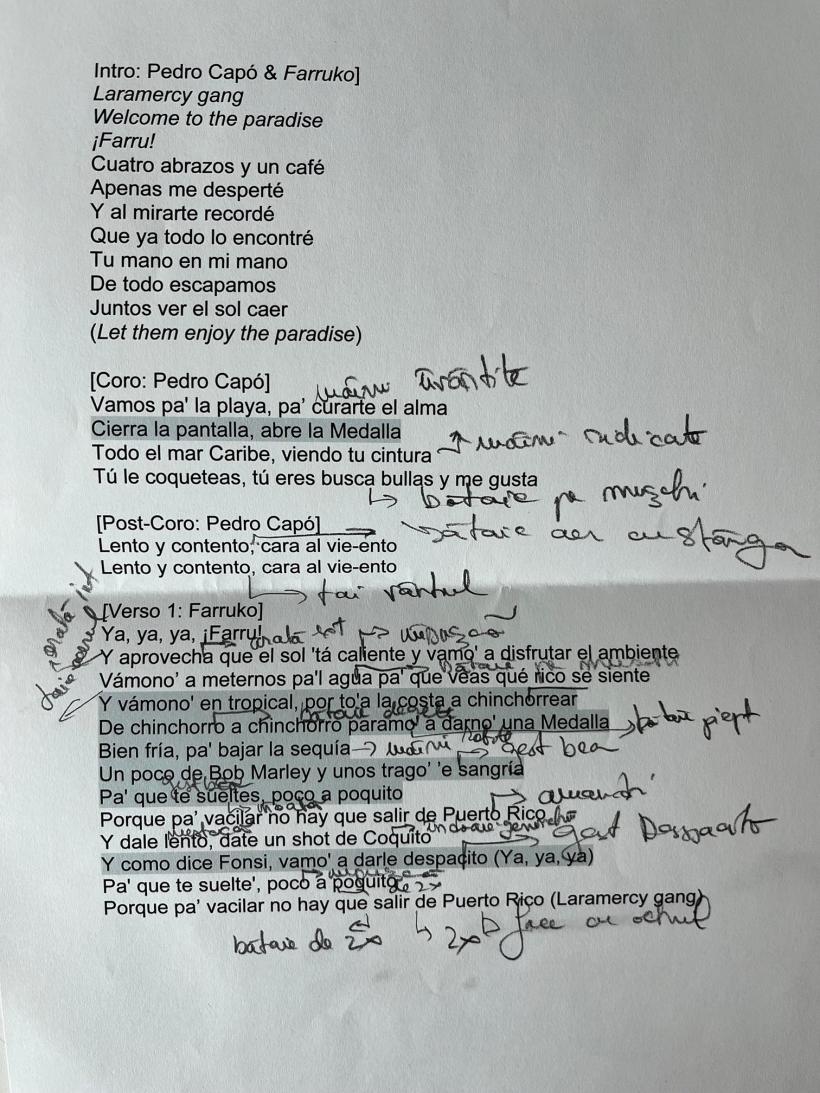 Intro: Pedro Capó & Farruko]
Laramercy gang
Welcome to the paradise
¡Farru!
Cuatro abrazos y un café
Apenas me desperté
Y al mirarte recordé
Que ya todo lo encontré
Tu mano en mi mano
De todo escapamos
Juntos ver el sol caer
(Let them enjoy the paradise)
[Coro: Pedro Capó]
mâini
Vamos pa' la playa, pa' curarte el alma
Cierra la pantalla, abre la Medalla
mâini ridicate
Todo el mar Caribe, viendo tu cintura
Tú le coqueteas, tú eres busca bullas y me gusta
bataie pe
[Post-Coro: Pedro Capó]
bătaie aer cu stânga
Lento y contento, cara al vie-ento
Lento y contento, cara al vie-ento
tai vântul
[Verso 1: Farruko]
Ya, ya, ya, ¡Farru!
arată
Y aprovecha que el sol 'tá caliente y vamo' a disfrutar el ambiente
Vámono' a meternos pa'l agua pa' que veas qué rico se siente
Y vámono' en tropical, por to'a la costa a chinchorrear
De chinchorro a chinchorro paramo' a darno' una Medalla
bataie piept
Bien fría, pa' bajar la sequía
mâini
gest bea
Un poco de Bob Marley y unos trago' 'e sangría
gest bea
Pa' que te sueltes, poco a poquito
Porque pa' vacilar no hay que salir de Puerto Rico
Y dale lento, date un shot de Coquito
gest
Y como dice Fonsi, vamo' a darle despacito (Ya, ya, ya)
Pa' que te suelte', poco a poquito
de 2x
Porque pa' vacilar no hay que salir de Puerto Rico (Laramercy gang)
bataie de 2x
2x face cu ochiul